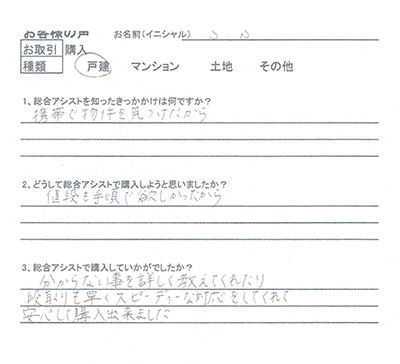 お客様の声 お名前(イニシャル) S.N
お取引 購入
種類 戸建 マンション 土地 その他
1、総合アシストを知ったきっかけは何ですか?
携帯で物件を見つけたから
2、どうして総合アシストで購入しようと思いましたか?
値段も手頃で欲しかったから
3、総合アシストで購入していかがでしたか?
分からない事を詳しく教えてくれたり
段取りも早くスピーディーな対応をしてくれて
安心して購入出来ました